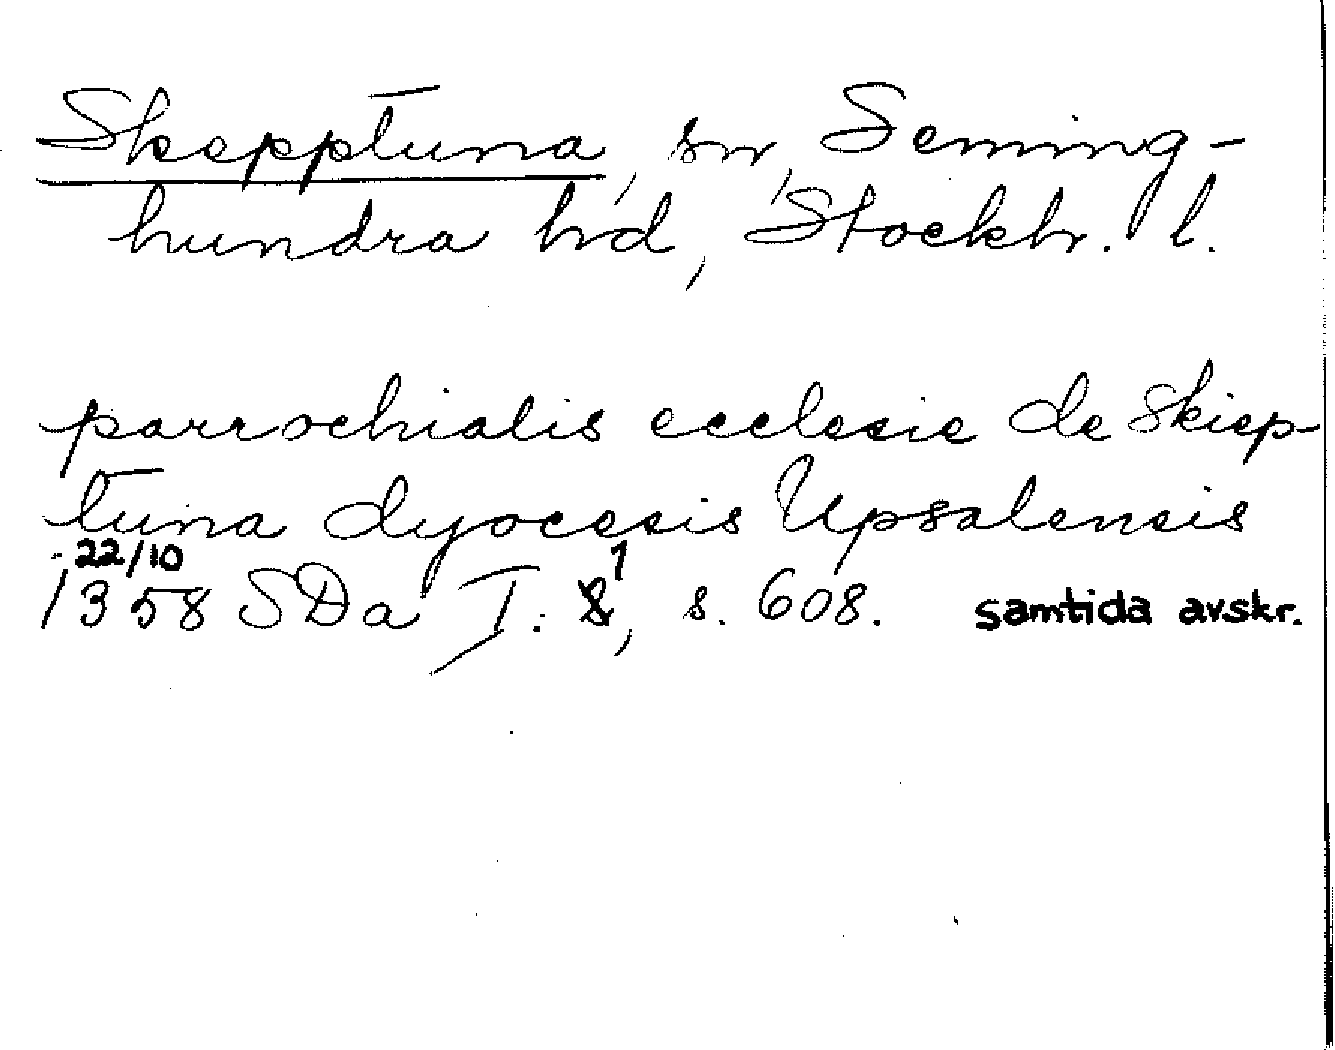 Skepptuna, sn, Seming-
hundra hd, Stockh. l.
parrochialis ecclesie de Skiep-
tuna dyocesis Upsalensis
22/10
1358 SDa I: 1, s. 608. samtida avskr.